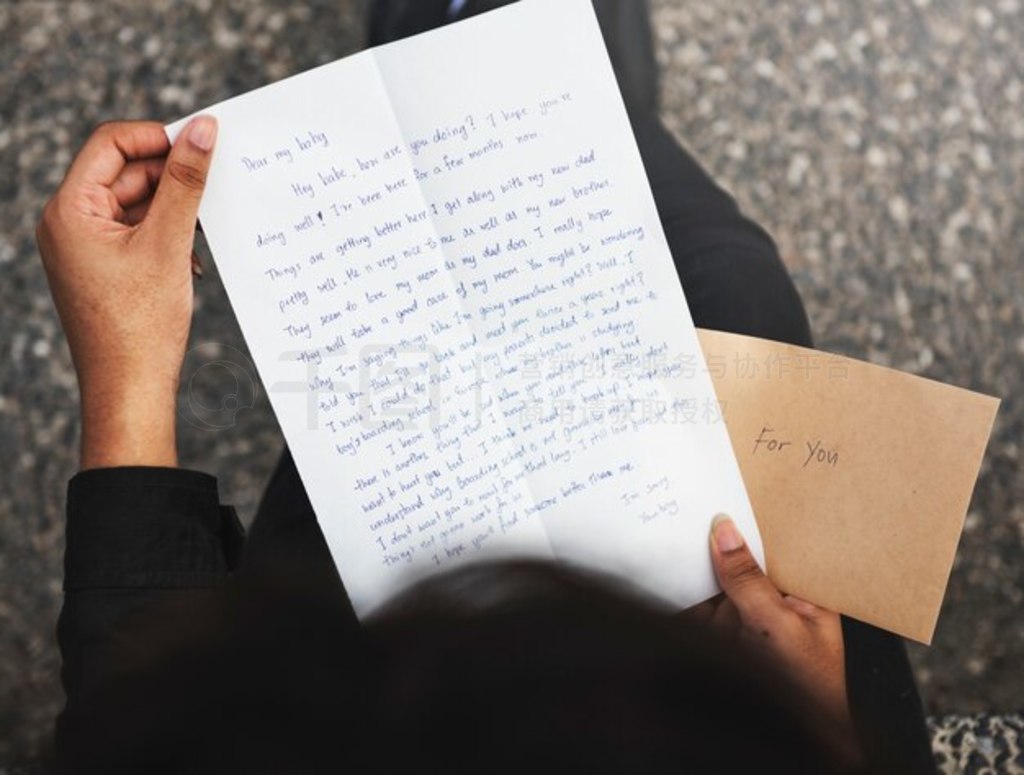 Dear my baby
Hey babe, how are you doing? I hope you're
doing well! I've been here for a few months now.
Things are getting better here. I get along with my new dad
pretty well. He is very nice to me as well as my new brother.
They seem to love my mom as my dad does. I really hope
they will take a good care of my mom. You might be wondering
why I'm saying things like I'm going somewhere right? Well, I
told you that I'd come back and meet you twice a year right?
I wish I could do that but my parents decided to send me to
boy's boarding school in Europe where my brother is studying
I know you'll be sad when you
there is another thing that I tell you but
want to hurt you but.. I think we should break up! I
understand why Boarding school is not
I don't want you to wait for me that long. I still love you but
things not gonna work for us
I hope you'll find someone better than me.
I'm sorry
Your boy
For You
千图
营销创意服务与协作平台
商用请获取授权